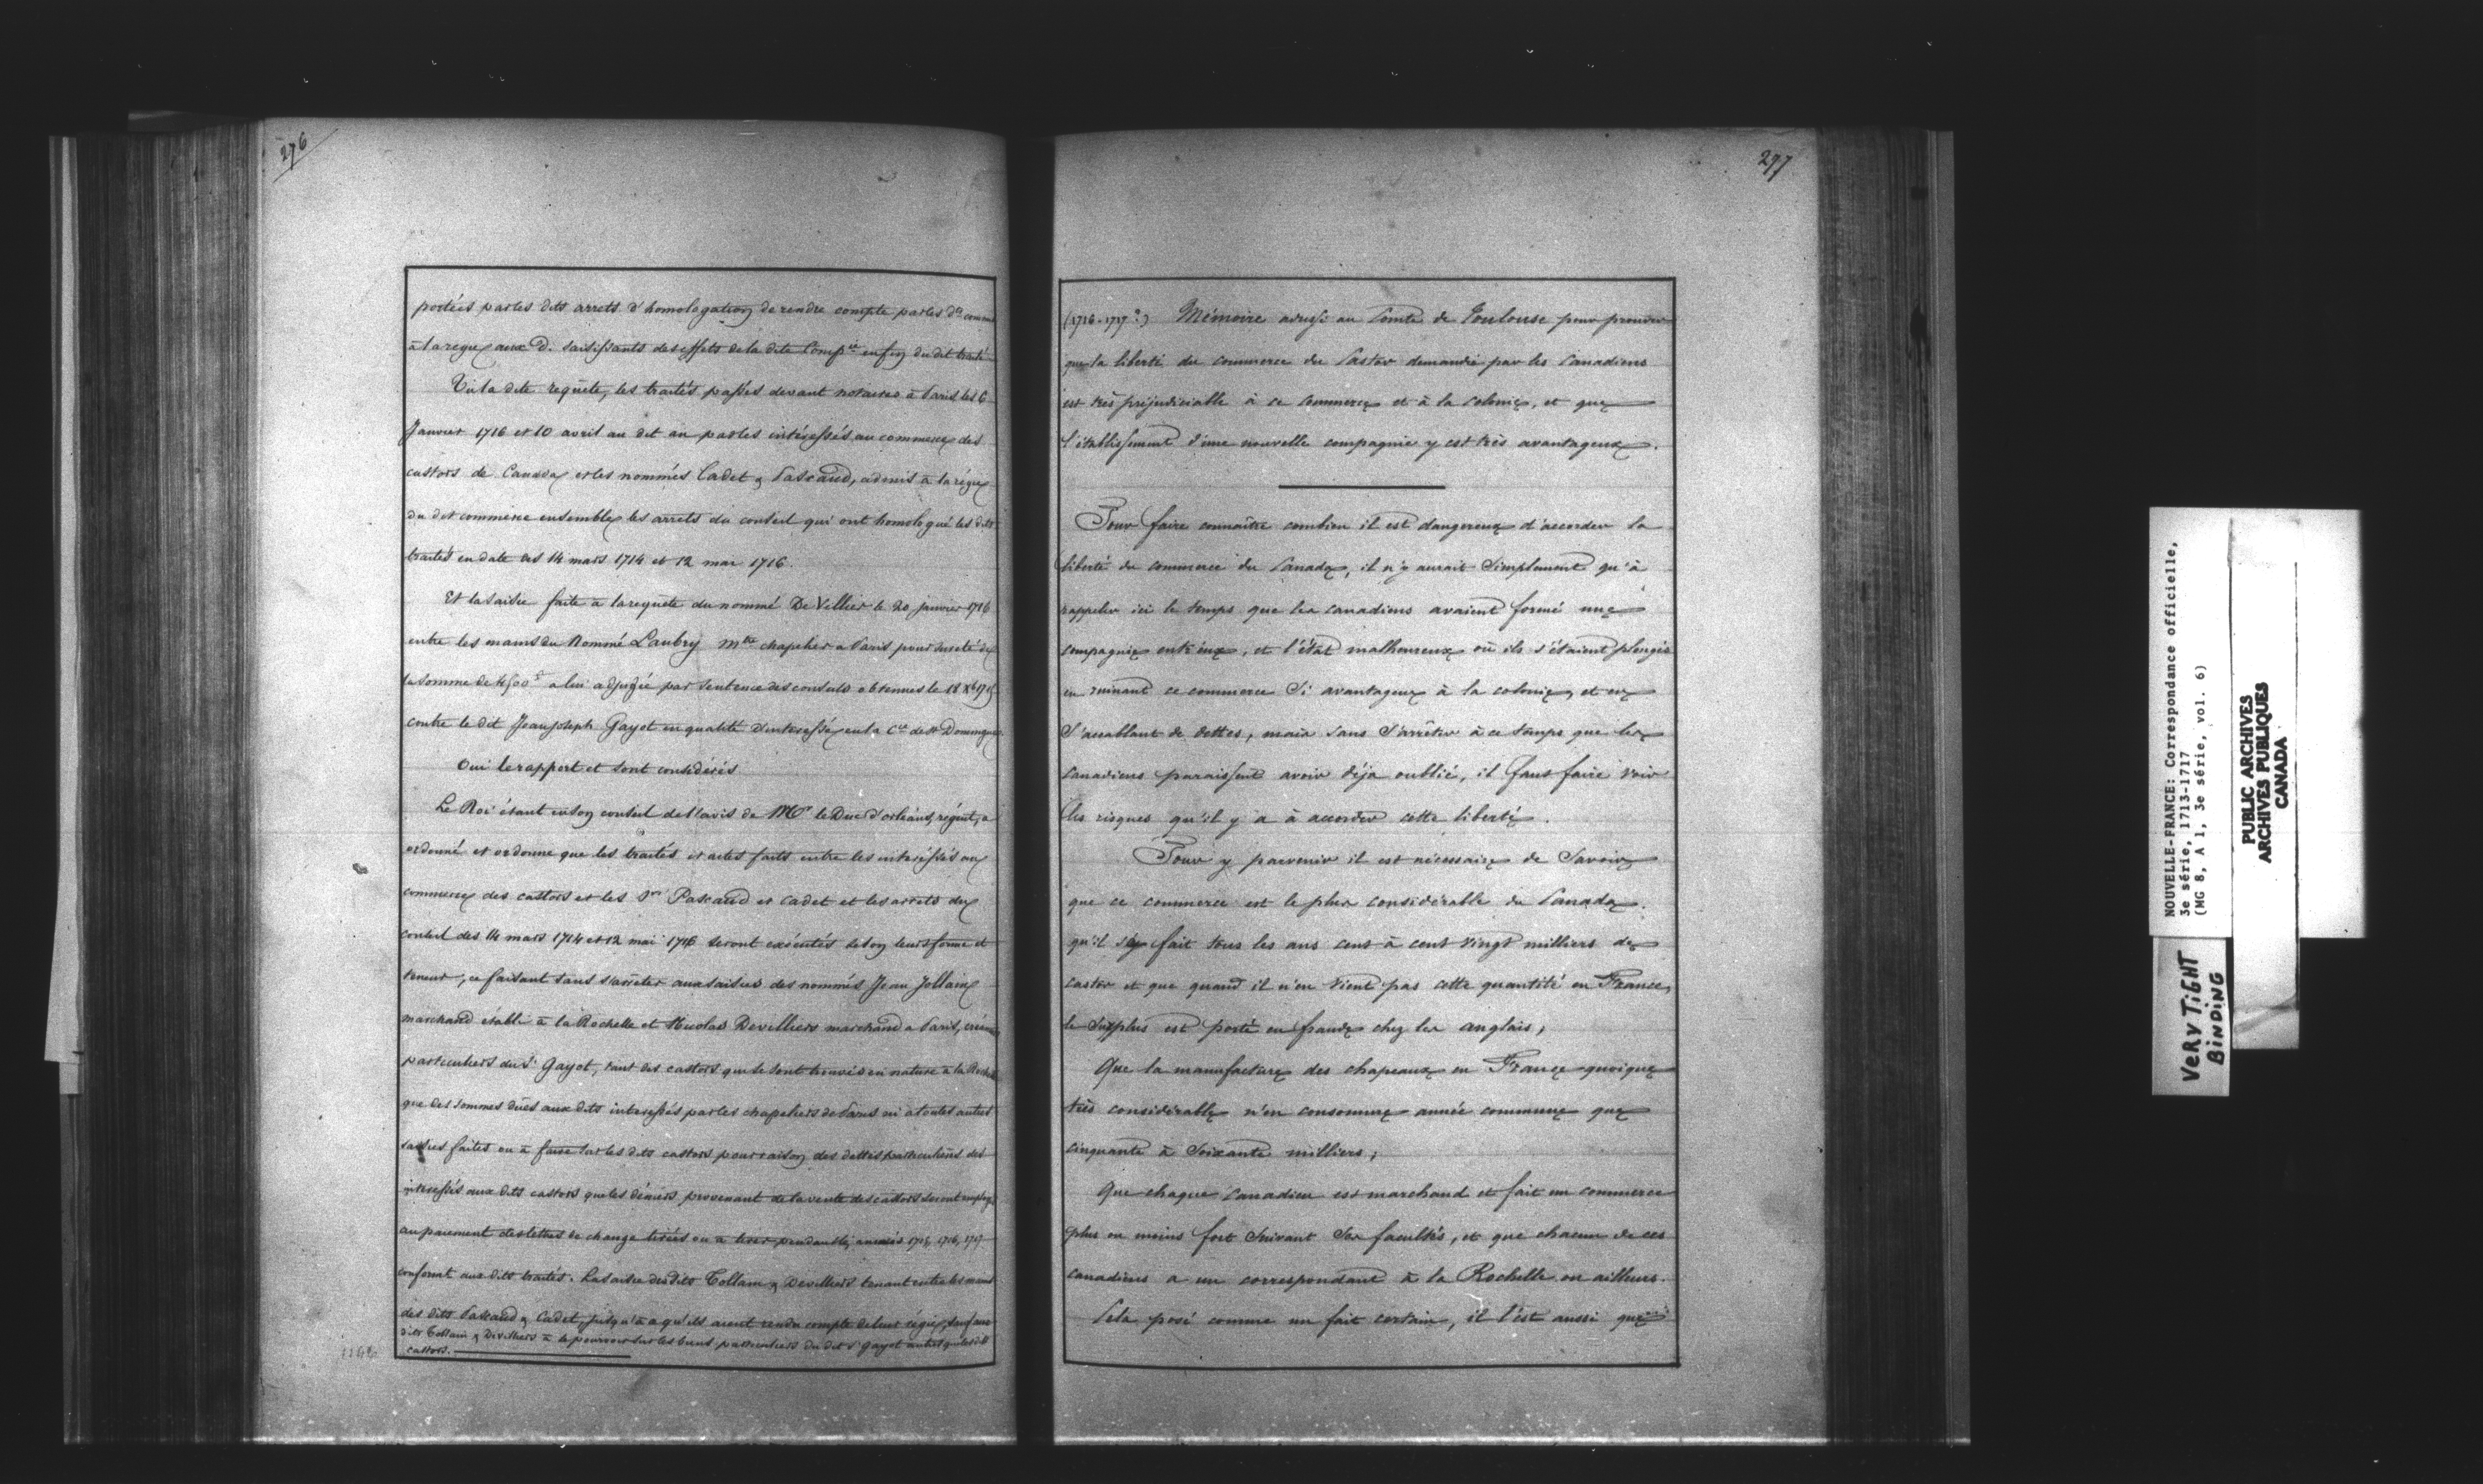 276
portées par les dits arrets d'homologation de rendre compte par les d. comme
à la regie aux d. saisissants des effets de la dite Comp.ie en fin du dit traité
Vu la dite requête, les traités passés devant notaires à Paris les 6
Janvier 1716 et 10 avril au dit an par les intéressés au commerce des
castors de Canada et les nommés Cadet & Pascaud, admis à la régie
du dit commerce ensemble les arrets du conseil qui ont homologué les dits
traités en date des 14 mars 1714 et 12 mai 1716.
Et la saisie faite à la requête du nommé De Villier le 20 janvier 1716
entre les mains du Nommé Laubry mtre chapelier a Paris pour sureté de
la somme de 4500 a lui adjugée par sentence des consuls obtenues le 18 Xb 1715
contre le dit Jean Joseph Gayot en qualité d'intéressé en la Cie de St Domingue
Oui le rapport et tout considérés
Le Roi étant en son conseil de l'avis de Mr le Duc d'orléans, régent, a
ordonné et ordonne que les traités et actes faits entre les intéressés au
commerce des castors et les Srs Pascaud et Cadet et les arrets du
conseil des 14 mars 1714 et 12 mai 1716 seront exécutés selon leurs forme et
teneur, ce faisant sans s'arrêter aux saisies des nommés Jean Jollain
marchand établi à la Rochelle et Nicolas Devilliers marchand a Paris,
particuliers du Sr Gayot, tant des castors qui se sont trouvés en nature a la Rochelle
que des sommes dües aux dits intéressés par les chapeliers de Paris ni a toutes autres
saisies faites ou à faire sur les dits castors pour raison des dettes particulières des
intéressés aux dits castors que les déniers provenant de la vente des castors seront employés
au paiement des lettres de change tirées ou à tirer pendant les années 1715, 1716, 1717
conformt aux dits traités. La saisie des dits Tollain & Devilliers tenant entre les mains
des dits Pascaud & Cadet, jusqu'à a qu'ils aient rendu compte de leur régie, sauf aux
dits Tollain & Devilliers à se pourvoir sur les biens particuliers du dit Sr Gayot autres que les dits
castors.
297
(1716-1717?) Mémoire adressé au Comte de Toulouse pour prouver
que la liberté du commerce du Castor demandée par les Canadiens
est très préjudiciable à ce commerce et à la colonie, et que
l'établissement d'une nouvelle compagnie y est très avantageux.
Pour faire connaître combien il est dangereux d'accorder la
liberté du commerce du Canada, il n'y aurait simplement qu'à
rappeler ici le temps que les canadiens avaient formé une
compagnie entr'eux, et l'état malheureux où ils s'étaient plongés
en ruinant ce commerce si avantageux à la colonie, et en
s'accablant de dettes, mais sans s'arrêter à ce temps que les
canadiens paraissent avoir déja oublié, il faut faire voir
les risques qu'il y a à accorder cette liberté.
Pour y parvenir il est nécessaire de savoir
que ce commerce est le plus considérable du Canada.
qu'il s'y fait tous les ans cent à cent vingt milliers de
castor et que quand il n'en vient pas cette quantité en France,
le surplus est porté en fraude chez les anglais;
Que la manufacture des chapeaux en France quoique
très considérable n'en consomme année commune que
cinquante à soixante milliers;
Que chaque canadien est marchand et fait un commerce
plus ou moins fort suivant ses facultés, et que chacun de ces
canadiens a un correspondant à la Rochelle ou ailleurs.
Cela posé comme un fait certain, il l'est aussi que
NOUVELLE-FRANCE: Correspondance officielle,
3e série, 1713-1717
(MG 8, A 1, 3e série, vol. 6)
PUBLIC ARCHIVES
ARCHIVES PUBLIQUES
CANADA
VERY TIGHT
BINDING